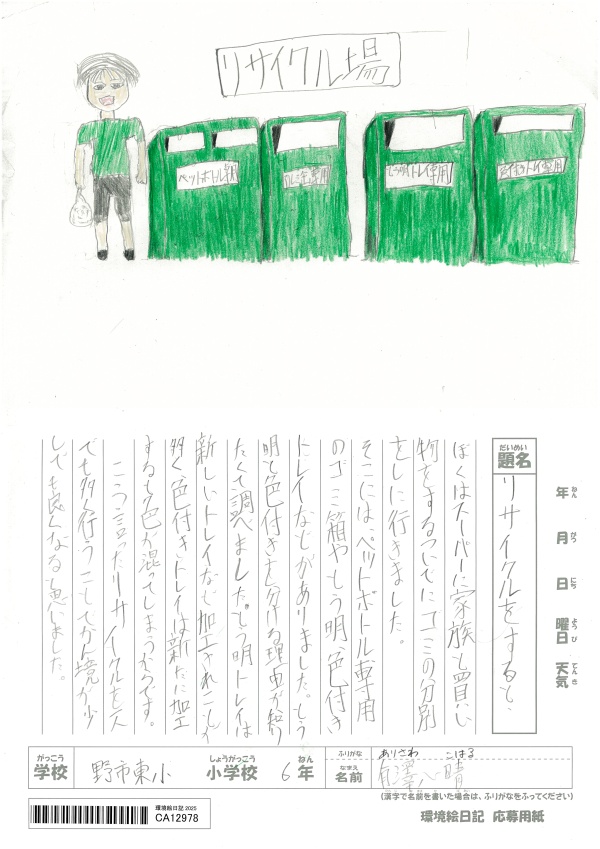 リサイクル場
ペットボトル専用
アルミ缶専用
とう明トレイ専用
色付きトレイ専用
年 ねん
月 がつ
日 にち
曜日 ようび
天気 てんき
だいめい
題名
リサイクルをすると、
ぼくはスーパーに家族と買い
物をするついでにゴミの分別
をしに行きました。
そこには、ペットボトル専用
のゴミ箱やとう明、色付き
トレイなどがありました。とう
明と色付きを分ける理由が知り
たくて調べました。とう明トレイは
新しいトレイなど加工されことが
多く色付きトレイは新たに加工
すると色が混ってしまうからです。
こう言ったリサイクルを一人
でも多く行うことでかん境が少
しでも良くなると思いました。
がっこう
学校
野市東小
しょうがっこう
小学校
6
ねん
年
ふりがな
ありさわ こはる
なまえ
名前
澤 晴
(漢字で名前を書いた場合は、ふりがなをふってください)
環境絵日記 2025
CA12978
環境絵日記 応募用紙